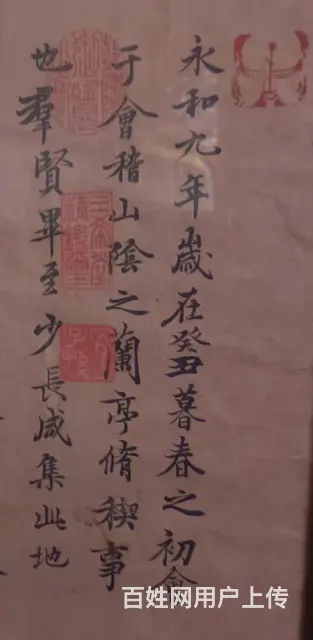 永和九年歲在癸丑暮春之初會
于會稽山陰之蘭亭脩稧事
也羣賢畢至少長咸集此地
百姓网用户上传